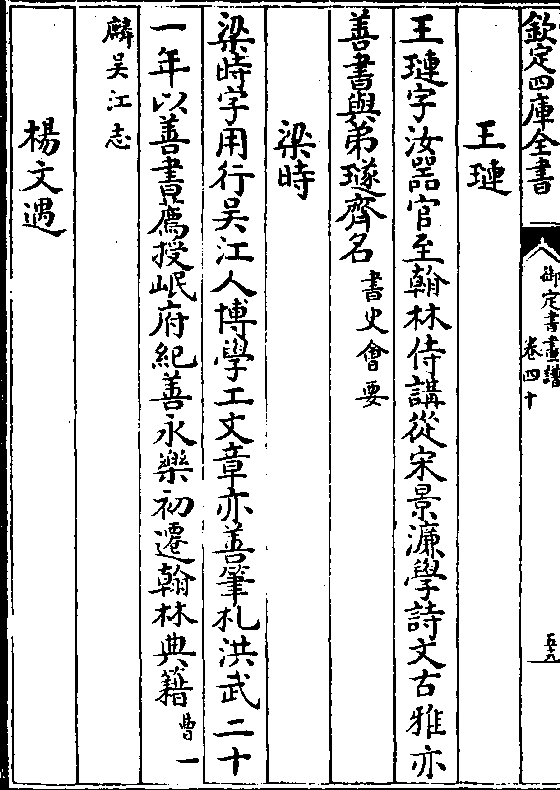 欽定四庫全書
御定書畫譜
卷四十
五六
王璉
王璉字汝器官至翰林侍講從宋景濂學詩文古雅亦
善書與弟璲齊名書史會要
梁時
梁時字用行吳江人博學工文章亦善筆札洪武二十
一年以善書薦授岷府紀善永樂初遷翰林典籍曹一
麟吳江志
楊文遇